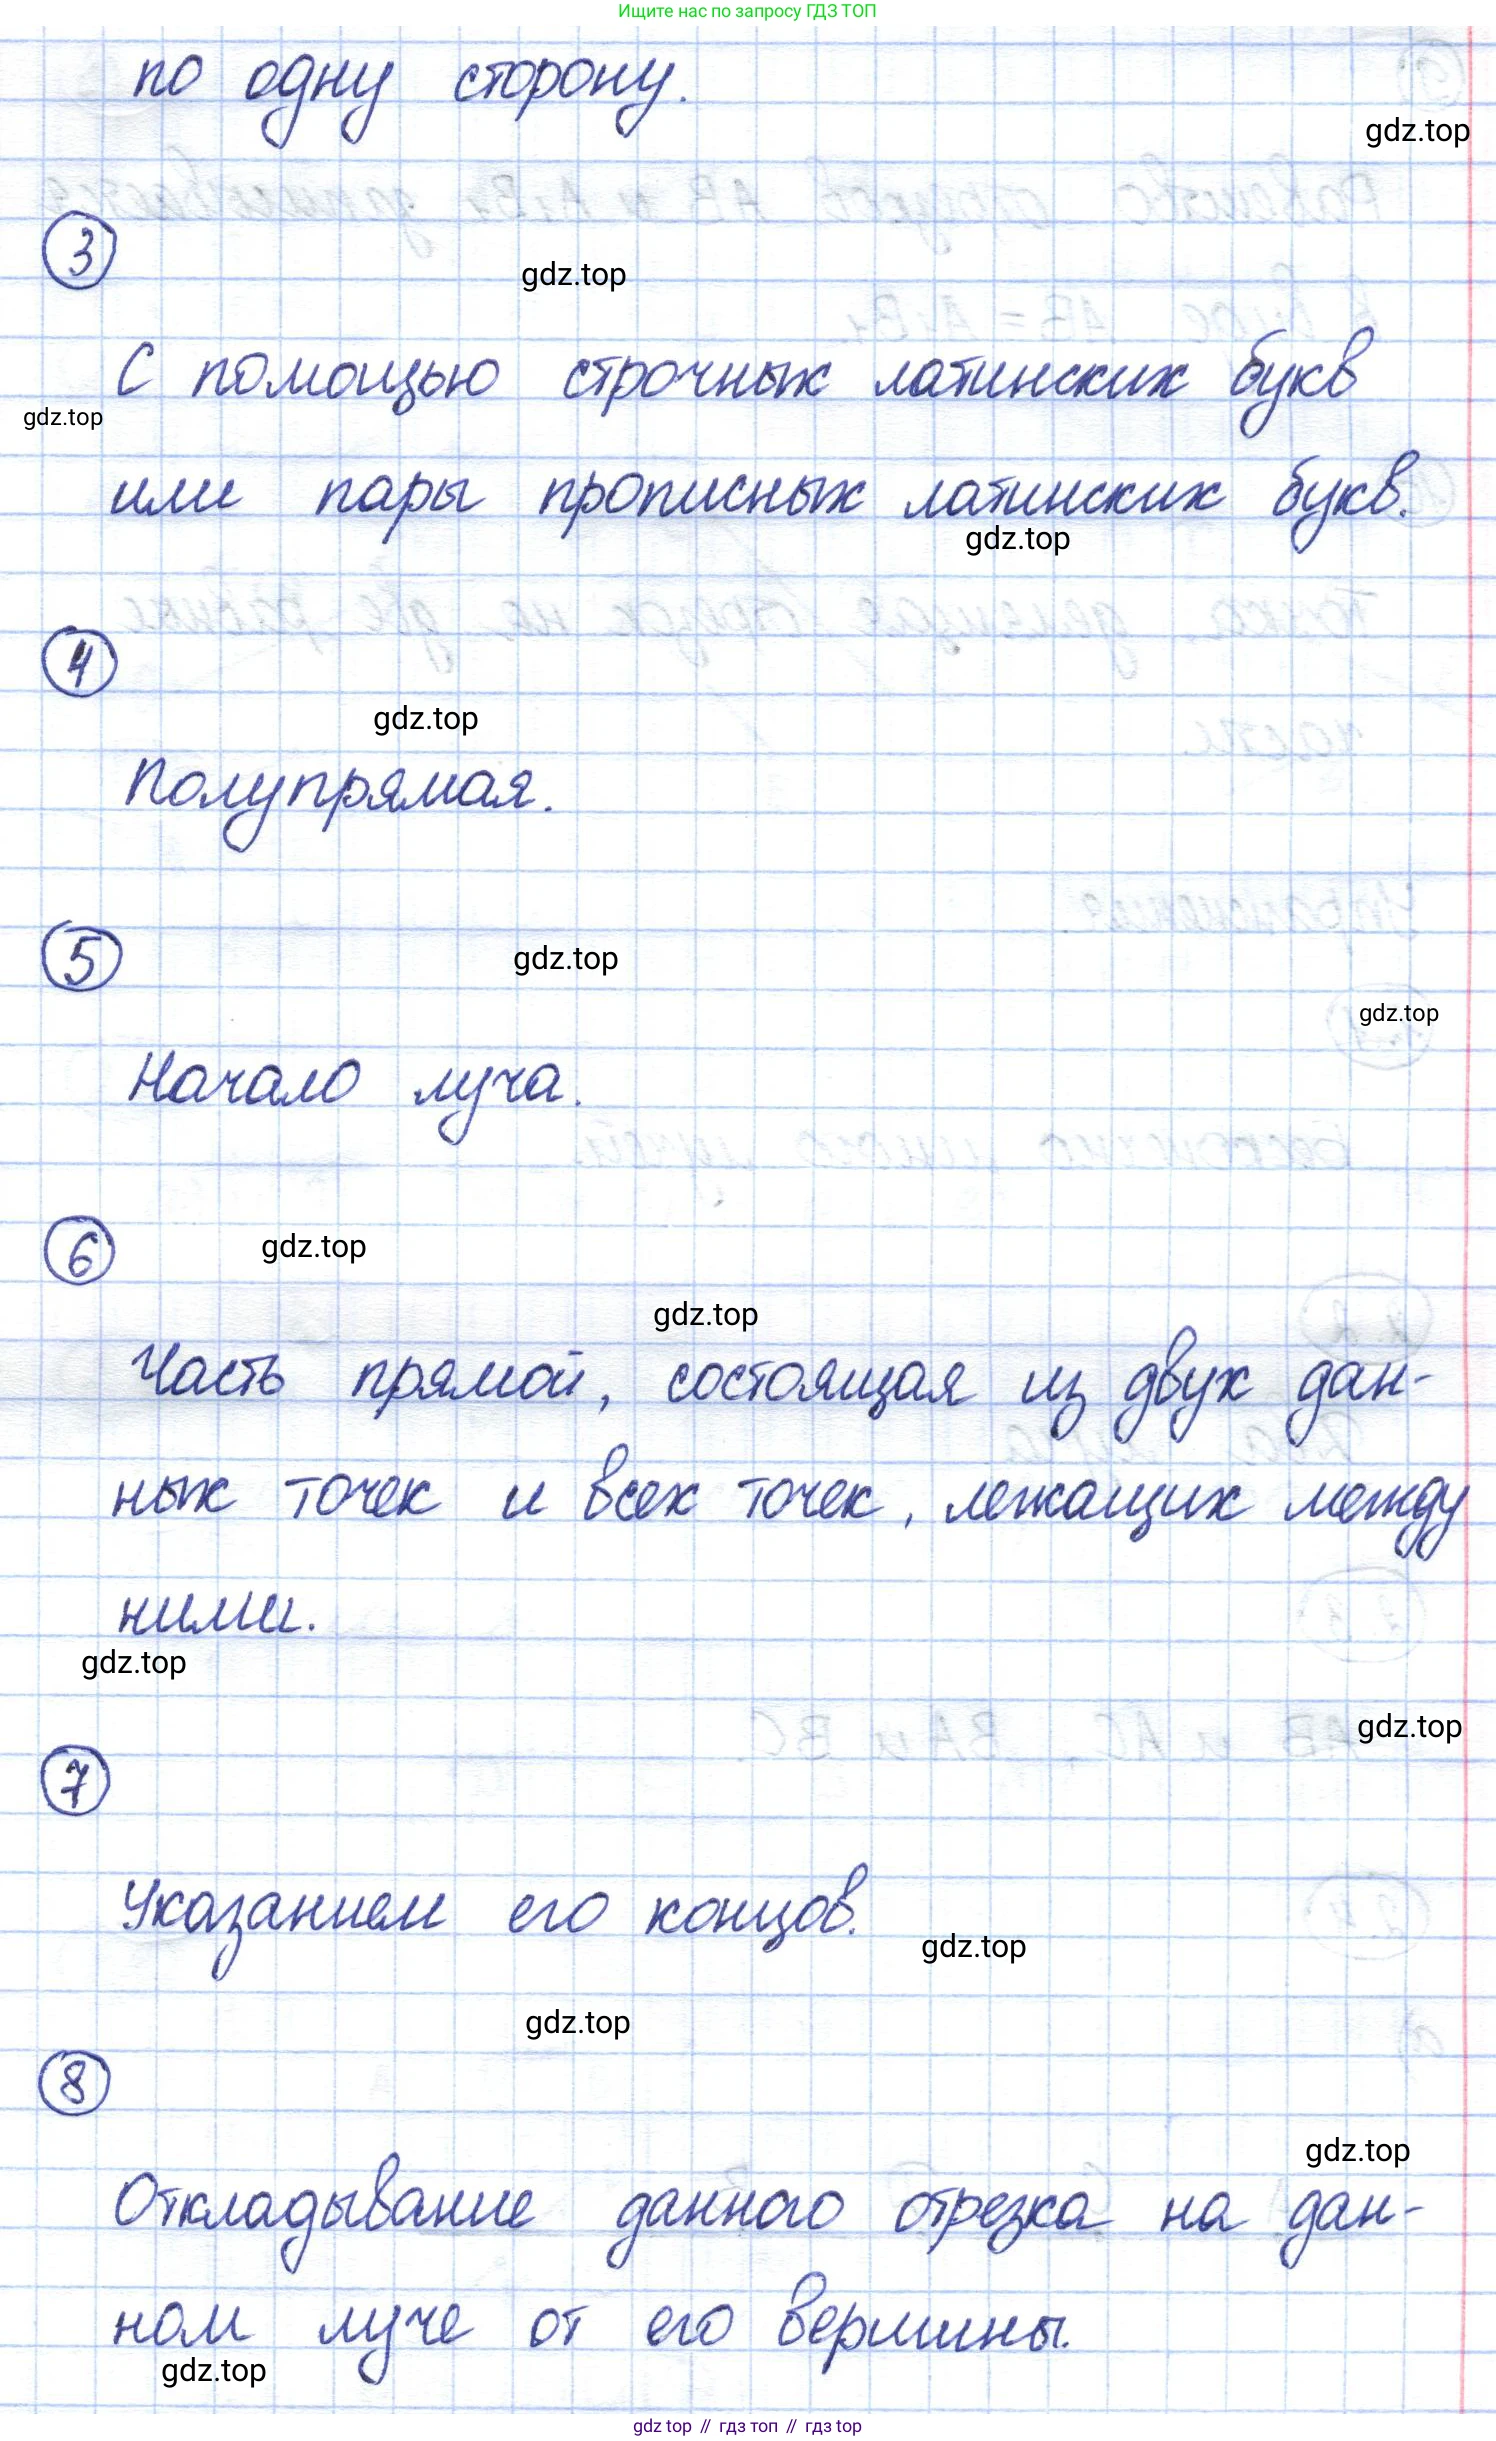 Ищите нас по запросу ГДЗ ТОП
по одну сторону.
gdz.top
3
gdz.top
С помощью строчных латинских букв
gdz.top
или пары прописных латинских букв.
gdz.top
4
gdz.top
Полупрямая.
5
gdz.top
gdz.top
Начало луча.
6
gdz.top
gdz.top
Часть прямой, состоящая из двух дан-
ных точек и всех точек, лежащих между
ними.
gdz.top
gdz.top
7
Указанием его концов.
gdz.top
gdz.top
8
gdz.top
Откладывание данного отрезка на дан-
ном луче от его вершины.
gdz.top
gdz top // гдз топ // гдз top